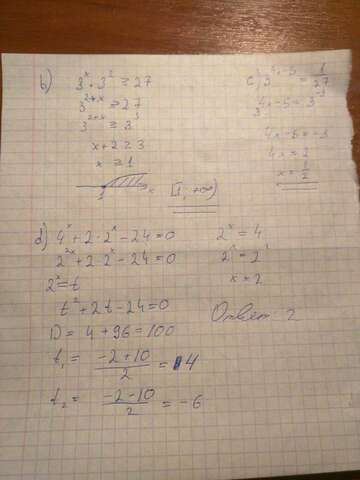 b) 3^x · 3^2 ≥ 27
3^(2+x) ≥ 27
3^(2+x) ≥ 3^3
x + 2 ≥ 3
x ≥ 1
1 x [1, +∞)
c) 3^(4x-5) = 1/27
3^(4x-5) = 3^(-3)
4x - 5 = -3
4x = 2
x = 1/2
d) 4^x + 2 · 2^x - 24 = 0
2^(2x) + 2 · 2^x - 24 = 0
2^x = t
t^2 + 2t - 24 = 0
D = 4 + 96 = 100
t₁ = (-2 + 10)/2 = 4
t₂ = (-2 - 10)/2 = -6
2^x = 4
x = 2
Ответ 2